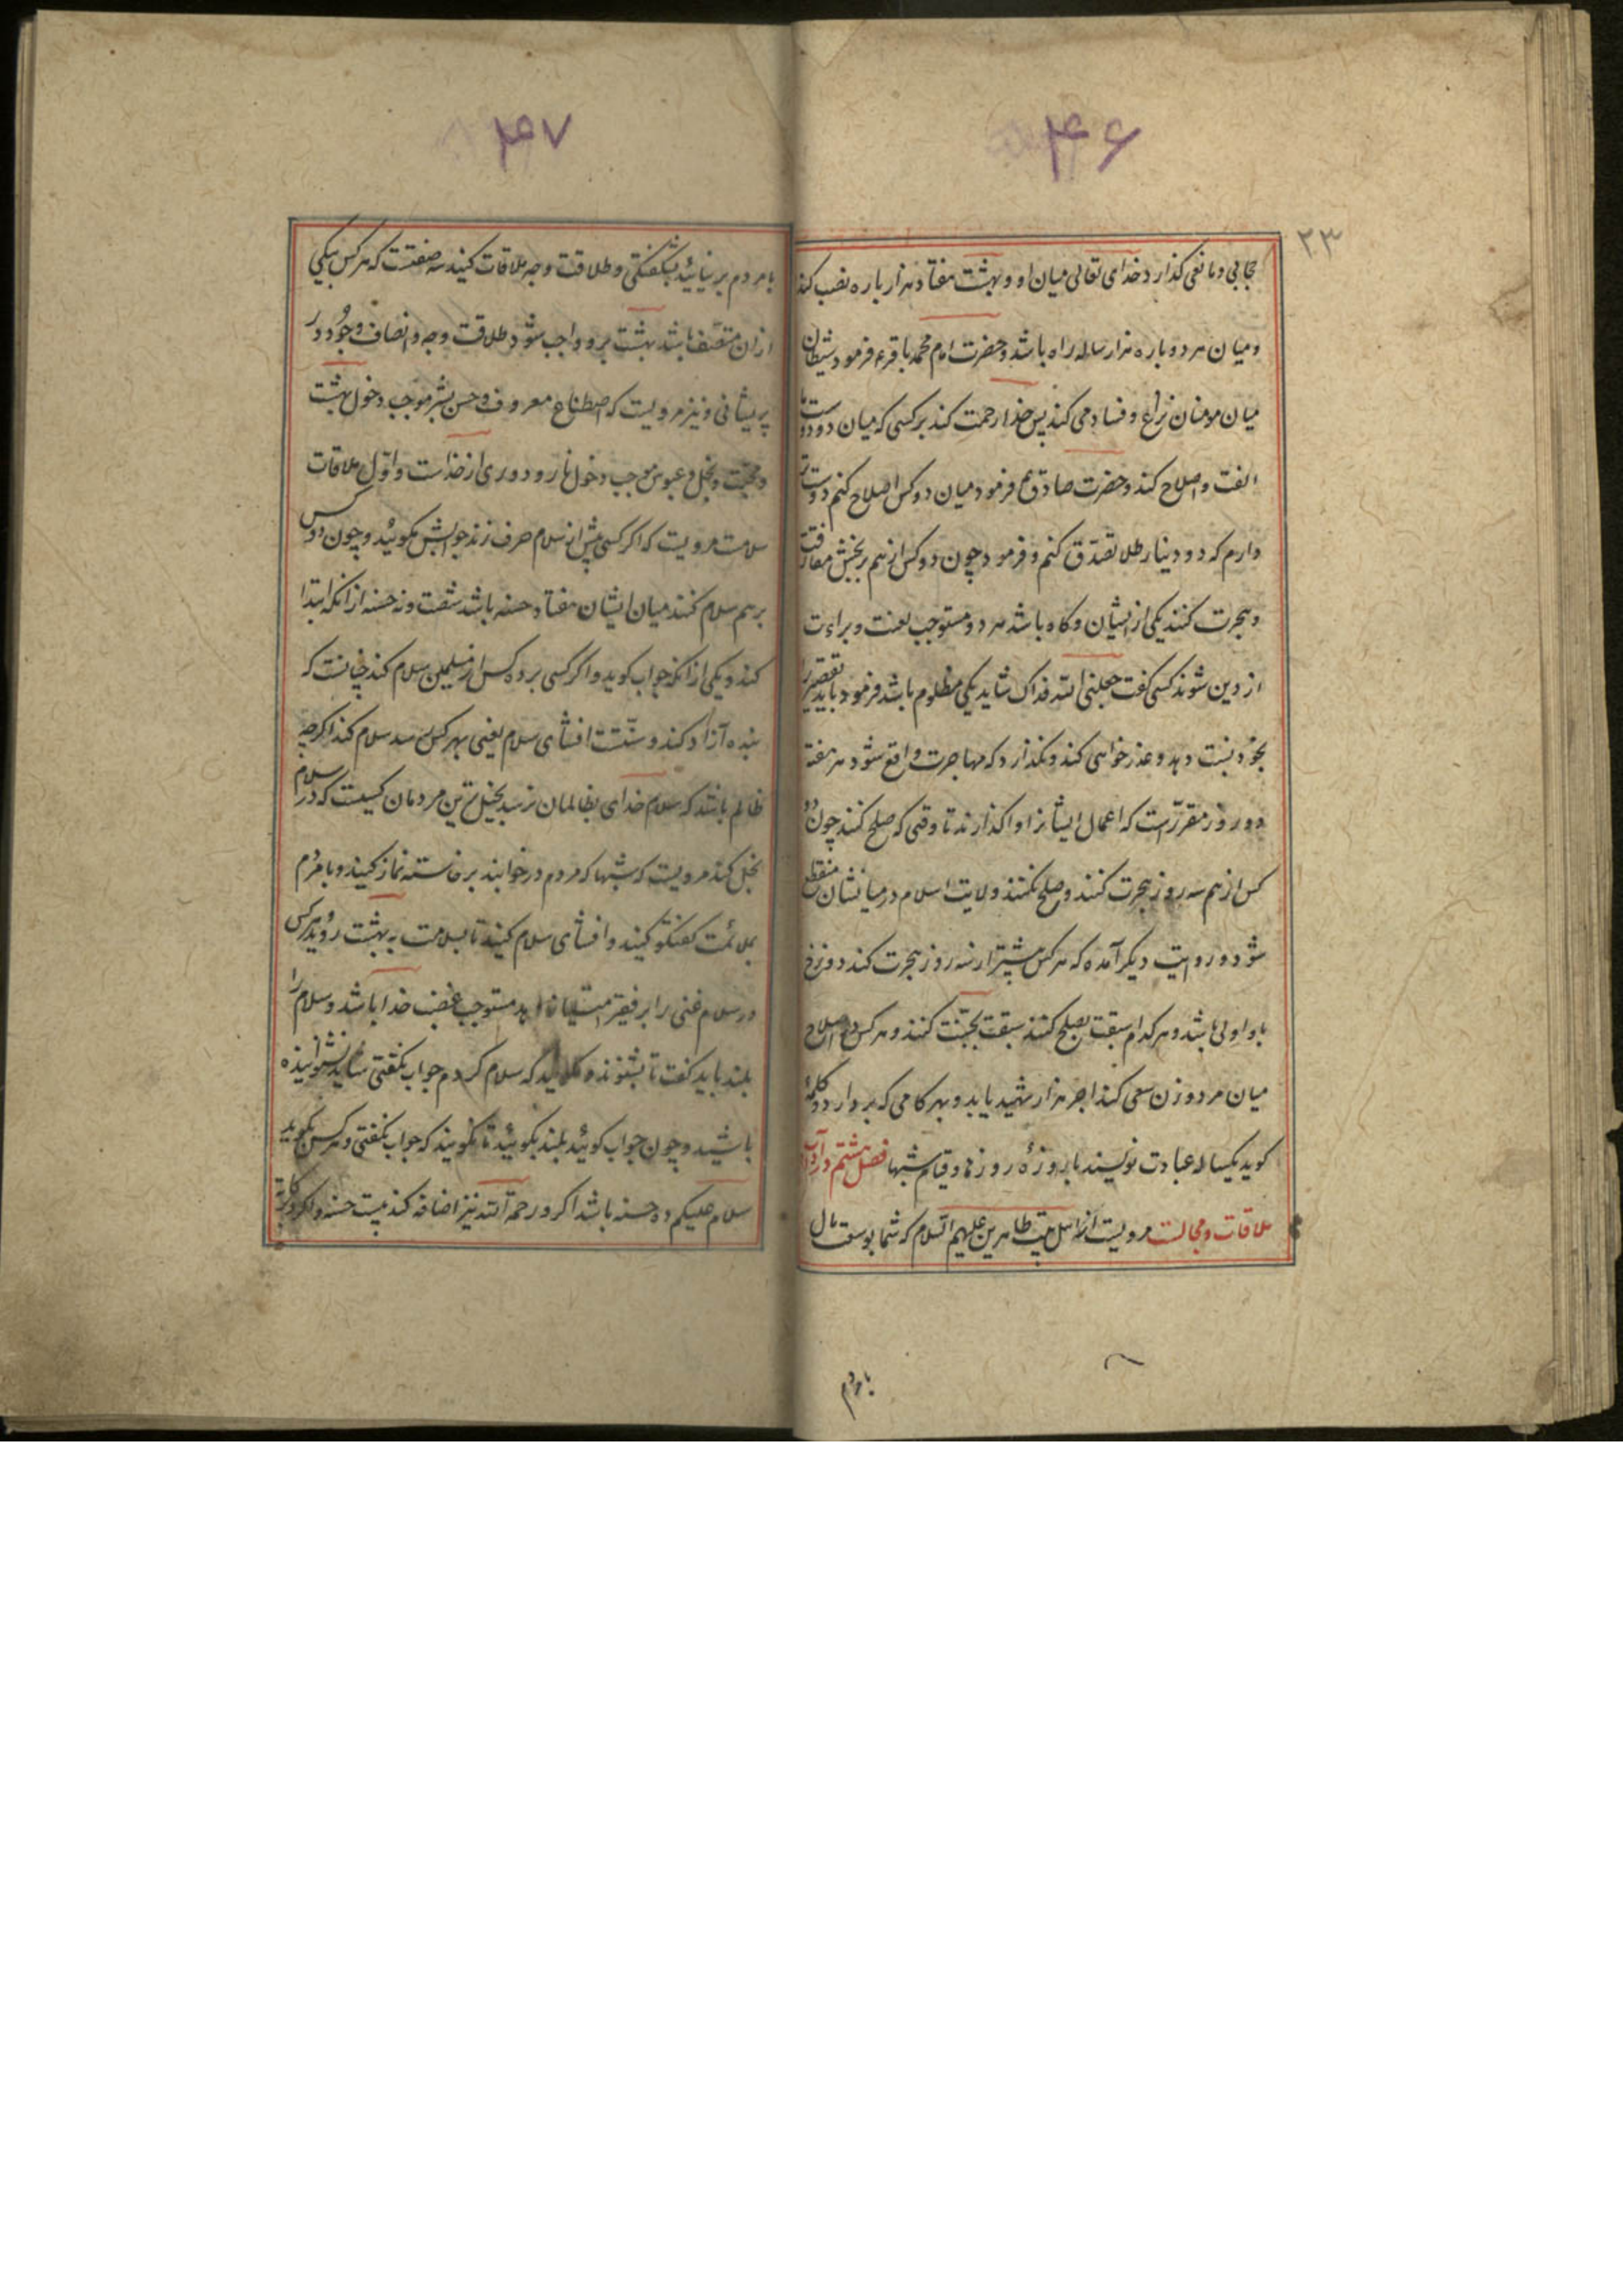 ۴۶
۲۳
حجابی و مانعی گذارد خدای تعالی میان او و بهشت هفتاد هزار باره نصب کند
و میان هر دو باره هزار ساله راه باشد و حضرت امام محمد باقر ع فرمود شیطان
میان مومنان نزاع و فساد می کند پس خدا رحمت کند بر کسی که میان دو دوست ما
الفت و اصلاح کند و حضرت صادق ع فرمود میان دو کس اصلاح کنم دوست تر
دارم که دو دینار طلا تصدّق کنم و فرمود چون دو کس از هم برنجش مفارقت
و هجرت کنند یکی از ایشان و گاه باشد هر دو مستوجب لعنت و براءت
از دین شوند کسی گفت جعلنی الله فداک شاید یکی مظلوم باشد فرمود باید تقصیر را
بخود نسبت دهد و عذر خواهی کند و نگذارد که مهاجرت واقع شود در هر هفته
دو روز مقرّر است که اعمال ایشانرا واگذارند تا وقتی که صلح کنند چون دو
کس از هم سه روز هجرت کنند و صلح نکنند ولایت اسلام در میانشان منقطع
شود و در روایت دیگر آمده که هر کس بیشتر از سه روز هجرت کند دوزخ
باو اولی باشد و هر کدام سبقت بصلح کنند سبقت بجنّت کنند و هر کس در اصلاح
میان مرد و زن سعی کند اجر هزار شهید یابد و بهر گامی که بردارد و کلمهٔ
گوید یکساله عبادت نویسند با روزهٔ روزها و قیام شبها فصل هشتم در آداب
ملاقات و مجالست مرویست از اهل بیت طاهرین علیهم السلام که شما بوسعت مال
با مردم
۴۷
با مردم بر نیایید بشگفتگی و طلاقت وجه ملاقات کنید سه صفتست که هر کس بیکی
از ان متّصف باشد بهشت برو واجب شود طلاقت وجه و انصاف و جود در
پریشانی و نیز مرویست که اصطناع معروف و حسن بشر موجب دخول بهشت
و محبّت و بخل و عبوس موجب دخول نار و دوری از خداست و اوّل ملاقات
سلامست مرویست که اگر کسی پیش از سلام حرف زند جوابش مگوئید و چون دو کس
بر هم سلام کنند میان ایشان هفتاد حسنه باشد شصت و نه حسنه از انکه ابتدا
کند و یکی از انکه جواب گوید و اگر کسی بر ده کس از مسلمین سلام کند چنانست که
بنده آزاد کند و سنّتست افشای سلام یعنی بهر کس رسد سلام کند اگرچه
ظالم باشد که سلام خدای بظالمان نرسد بخیل ترین مردمان کسیست که در سلام
بخل کند مرویست که شبها که مردم در خوابند برخاسته نماز کنید و با مردم
بملائمت گفتگو کنید و افشای سلام کنید تا بسلامت به بهشت روید هر کس
در سلام غنی را بر فقیر امتیاز نماید مستوجب غضب خدا باشد و سلام را
بلند باید گفت تا بشنوند و نگوئید که سلام کردم جواب نگفتی شاید نشنوانیده
باشید و چون جواب گوئید بلند بگوئید تا نگویند که جواب نگفتی و هر کس بگوید
سلام علیکم ده حسنه باشد اگر و رحمة الله نیز اضافه کند بیست حسنه و اگر و برکاته